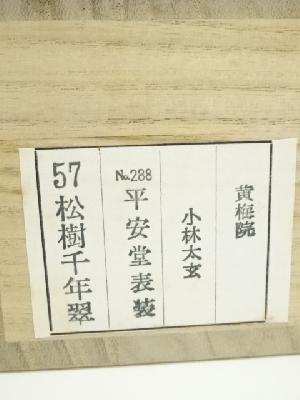 黄梅院
小林太玄
No.288 平安堂表装
57 松樹千年翠